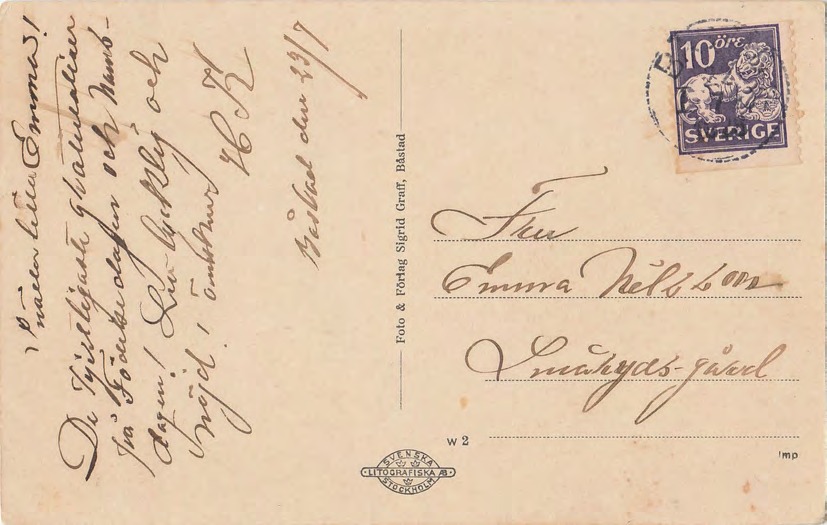 Snälla lilla Emma!
De hjertligaste gratulationer
på Födelsedagen och Namns-
dagen! Lev lycklig och
nöjd! önskar
H K
Båstad den 23/7
Foto & Förlag Sigrid Graff, Båstad
10 öre
SVERIGE
Fru
Emma Nilsson
Småryds-gård
W 2
SVENSKA
LITOGRAFISKA AB
STOCKHOLM
Imp